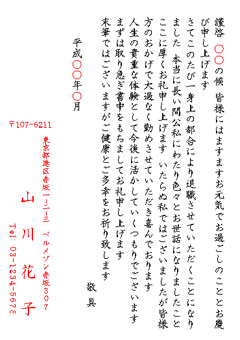 謹啓 〇〇の候 皆様にはますますお元気でお過ごしのこととお慶
び申し上げます
さてこのたび一身上の都合により退職させていただくことになり
ました 本当に長い間公私にわたり色々とお世話になりましたこと
ここに厚くお礼申し上げます いたらぬ私ではございましたが皆様
方のおかげで大過なく勤めさせていただき喜んでおります
人生の貴重な体験として今後に活かしていくつもりでございます
まずは取り急ぎ書中をもちましてお礼申し上げます
末筆ではございますがご健康とご多幸をお祈り致します
敬具
平成〇〇年〇月
〒107-6211
東京都港区赤坂一-二-三 ベルメゾン赤坂307
山川花子
Tel 03-1234-5678